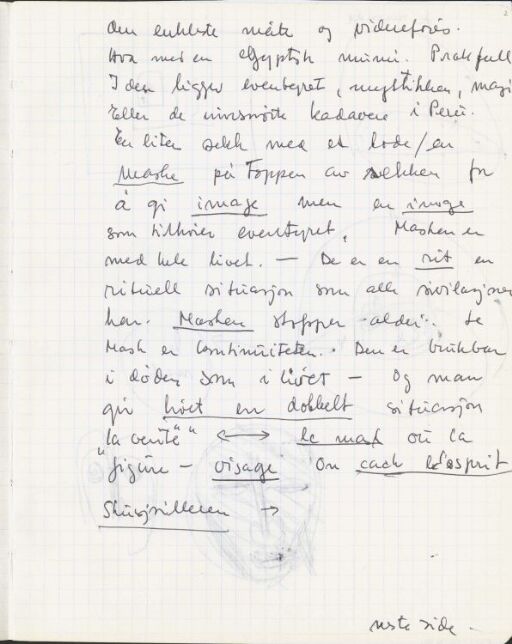 den enkleste måte og videreføres.
Hva med en egyptisk mumi. Praktfull
I den ligger eventyret, mystikken, magi
Eller de innsnørte kadavere i Peru.
En liten sekk med et hode/en
maske på toppen av sekken for
å gi image men en image
som tilhører eventyret. Masken er
med hele livet. — De er en rit en
rituell situasjon som alle sivilasjoner
har. Masken stopper aldri. Le
Mask er kontinuiteten. Den er brukbar
i døden som i livet — Og man
gir livet en dobbelt situasjon
la verité" ⟷ le mask où la
"figure — visage On cach l'esprit
→
neste side.
2